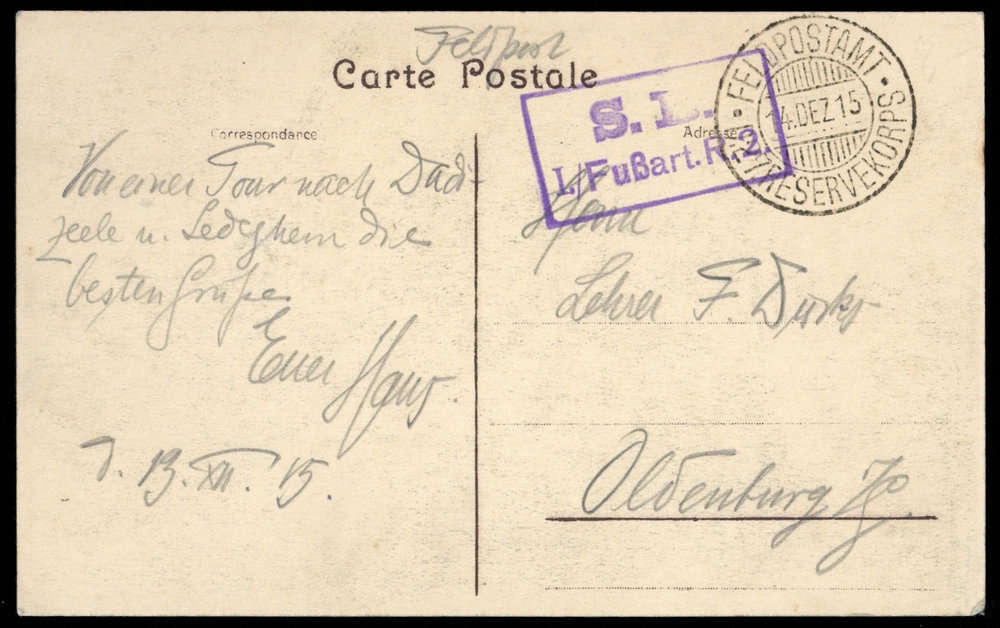 Feldpost
Carte Postale
S. B.
I./Fußart. R. 2.
FELDPOSTAMT
14.DEZ.15
RESERVEKORPS
Correspondance
Adresse
Von einer Tour nach Dadi-
zeele u. Ledeghem die
besten Grüße
Euer Hans.
d. 13. XII. 15.
Herrn
Lehrer F.
Oldenburg i/Gr.